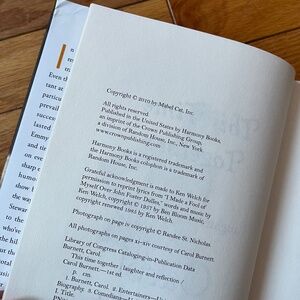 Copyright © 2010 by Mabel Cat, Inc.
All rights reserved.
Published in the United States by Harmony Books,
an imprint of the Crown Publishing Group,
a division of Random House, Inc., New York.
www.crownpublishing.com
Harmony Books is a registered trademark and
the Harmony Books colophon is a trademark of
Random House, Inc.
Grateful acknowledgment is made to Ken Welch for
permission to reprint lyrics from "I Made a Fool of
Myself Over John Foster Dulles," words and music by
Ken Welch, copyright © 1957 by Ben Bloom Music,
copyright renewed 1985 by Ken Welch.
Photograph on page iv copyright © Randee St. Nicholas
All photographs on pages xi–xiv courtesy of Carol Burnett.
Library of Congress Cataloging-in-Publication Data
Burnett, Carol
This time together : laughter and reflection /
Carol Burnett.—1st ed.
p. cm.
1. Burnett, Carol. 2. Entertainers—
Biography. 3. Comedians—
I. Title.
I
Even th
tant at
particu
prevai
succes
lasted
Emmy
and tie
Stewar
on a w
the hil